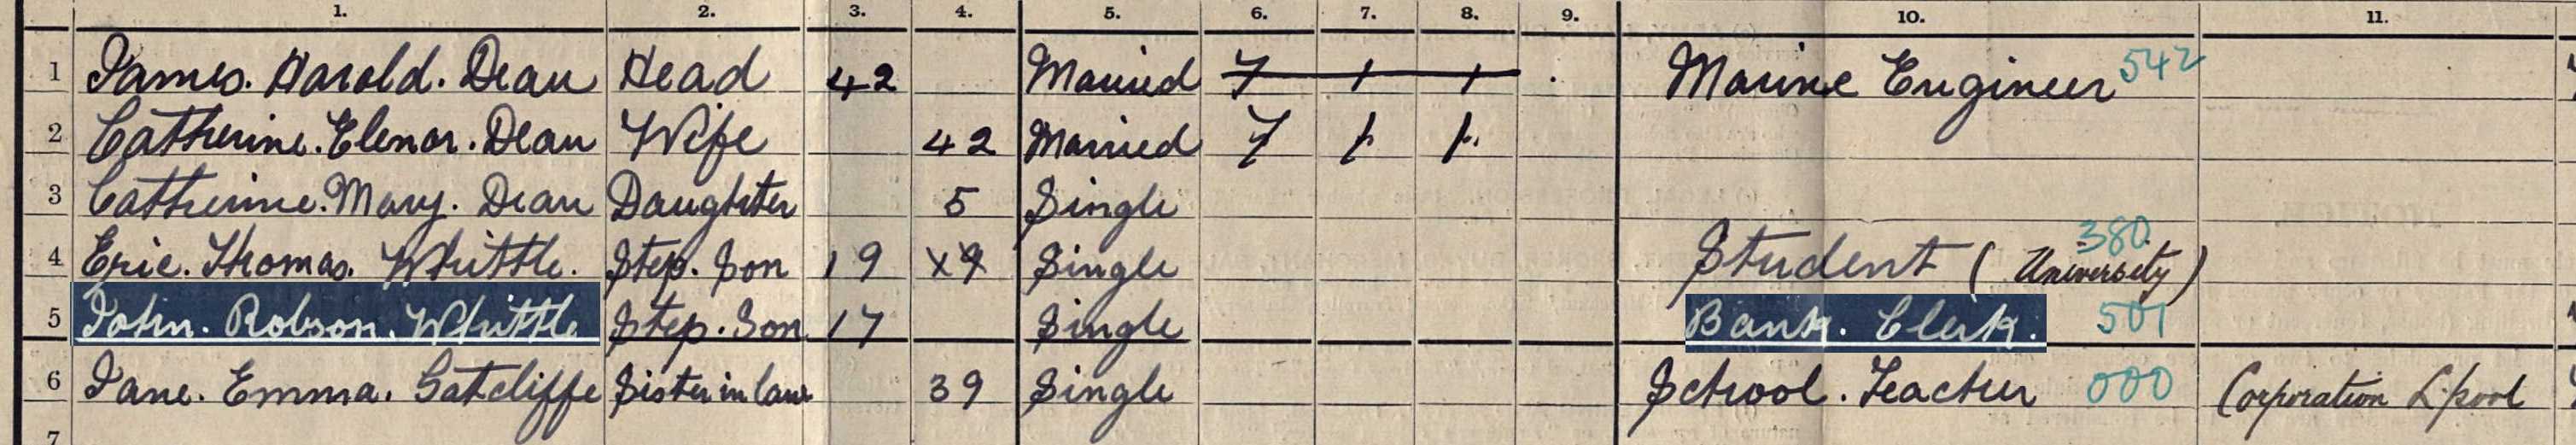 1. 2. 3. 4. 5. 6. 7. 8. 9. 10. 11.
1 James. Harold. Dean Head 42 Married 7 1 1 Marine Engineer 542
2 Catherine. Elenor. Dean Wife 42 Married 7 1 1
3 Catherine. Mary. Dean Daughter 5 Single
4 Eric. Thomas. Whittle. Step. Son 19 Single Student (University) 380
5 John. Robson. Whittle Step. Son 17 Single Bank. Clerk. 501
6 Jane. Emma. Gatcliffe Sister in law 39 Single School. Teacher 000 Corporation L'pool
7